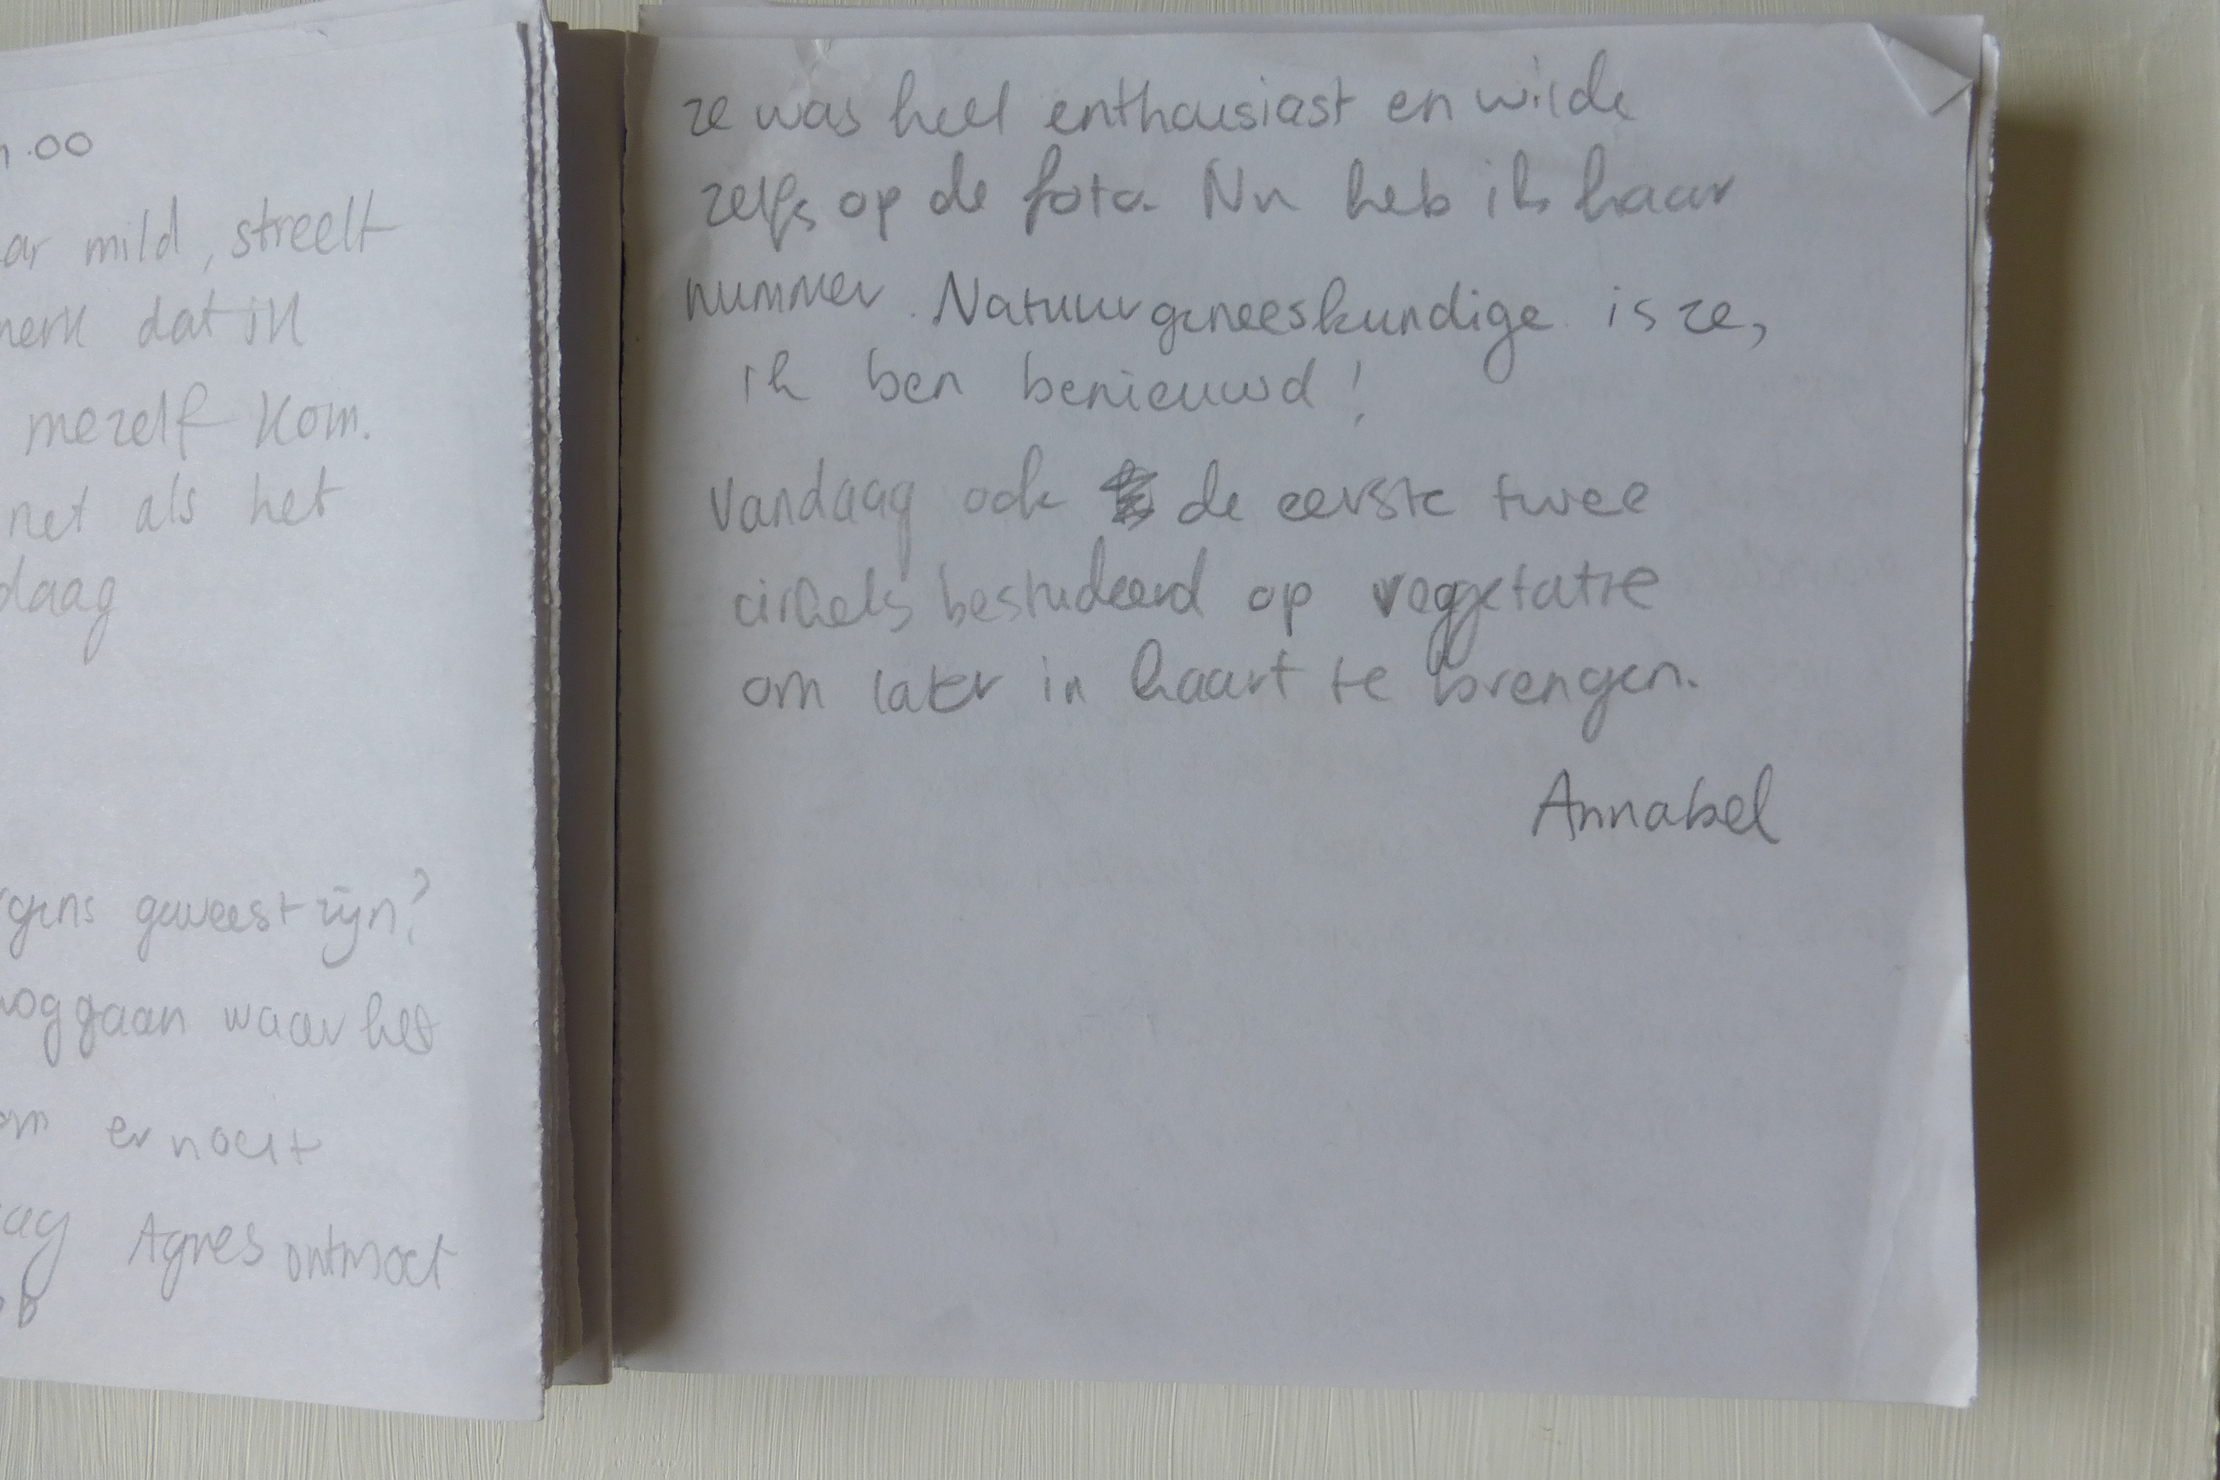 .00
ar mild, streelt
merk dat ik
mezelf kom.
net als het
daag
geweest zijn?
nog gaan waar het
om er nooit
Agnes ontmoet
ze was heel enthousiast en wilde
zelfs op de foto. Nu heb ik haar
nummer. Natuurgeneeskundige is ze,
ik ben benieuwd!
Vandaag ook de eerste twee
cirkels bestudeerd op veggetatie
om later in kaart te brengen.
Annabel